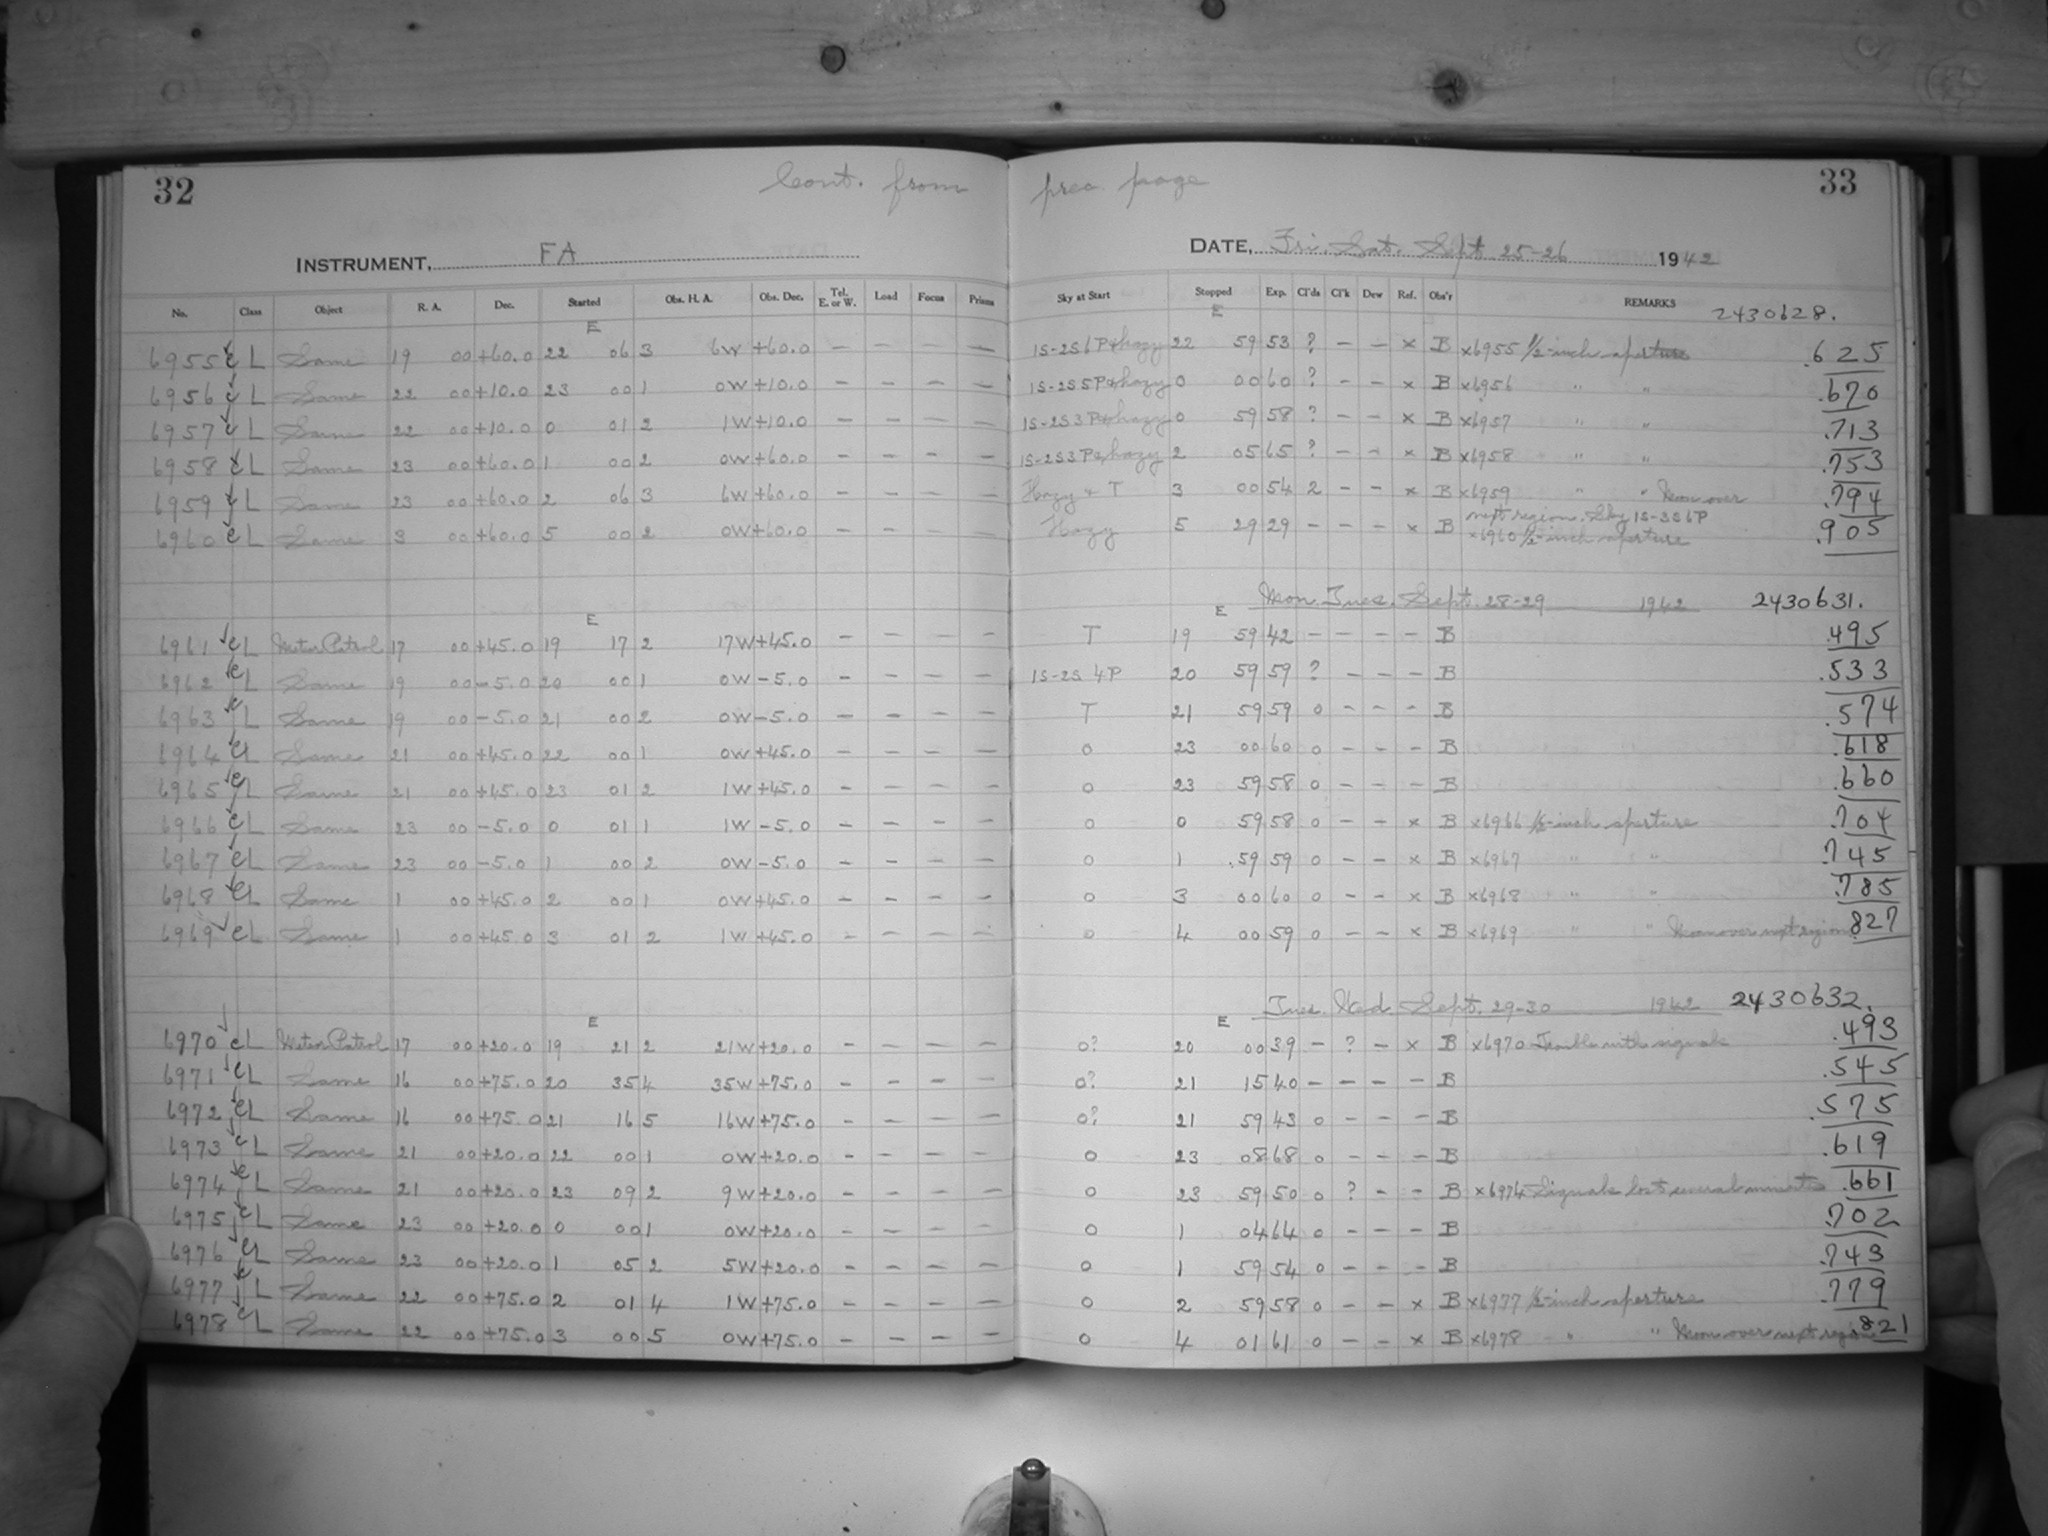 32 Cont. from prec. page 33
INSTRUMENT, FA DATE, Fri. Sat. Sept. 25-26 1942
No. Class Object R. A. Dec. Started Obs. H. A. Obs. Dec. Tel. E. or W. Load Focus Prisms Sky at Start Stopped Exp. Cl'ds Cl'k Dew Ref. Obs'r REMARKS
E E 2430628.
6955 e L Same 19 00 +60.0 22 06 3 6W +60.0 — — — — 1S-2S6P+hazy 22 59 53 ? — — x B x6955 1/2-inch aperture .625
6956 e L Same 22 00 +10.0 23 00 1 0W +10.0 — — — — 1S-2S5P+hazy 0 00 60 ? — — x B x6956 " " .670
6957 e L Same 22 00 +10.0 0 01 2 1W +10.0 — — — — 1S-2S3P+hazy 0 59 58 ? — — x B x6957 " " .713
6958 e L Same 23 00 +60.0 1 00 2 0W +60.0 — — — — 1S-2S3P+hazy 2 05 65 ? — — x B x6958 " " .753
6959 e L Same 23 00 +60.0 2 06 3 6W +60.0 — — — — Hazy + T 3 00 54 2 — — x B x6959 " " Moon over .794
next region. Sky 1S-3S6P
6960 e L Same 3 00 +60.0 5 00 2 0W +60.0 — — — — Hazy 5 29 29 — — — x B x6960 1/2-inch aperture .905
E E Mon. Tues. Sept. 28-29 1942 2430631.
6961 e L Meteor Patrol 17 00 +45.0 19 17 2 17W +45.0 — — — — T 19 59 42 — — — — B .495
6962 e L Same 19 00 -5.0 20 00 1 0W -5.0 — — — — 1S-2S 4P 20 59 59 ? — — — B .533
6963 e L Same 19 00 -5.0 21 00 2 0W -5.0 — — — — T 21 59 59 0 — — — B .574
6964 e L Same 21 00 +45.0 22 00 1 0W +45.0 — — — — 0 23 00 60 0 — — — B .618
6965 e L Same 21 00 +45.0 23 01 2 1W +45.0 — — — — 0 23 59 58 0 — — — B .660
6966 e L Same 23 00 -5.0 0 01 1 1W -5.0 — — — — 0 0 59 58 0 — — x B x6966 1/2-inch aperture .704
6967 e L Same 23 00 -5.0 1 00 2 0W -5.0 — — — — 0 1 59 59 0 — — x B x6967 " " .745
6968 e L Same 1 00 +45.0 2 00 1 0W +45.0 — — — — 0 3 00 60 0 — — x B x6968 " " .785
6969 e L Same 1 00 +45.0 3 01 2 1W +45.0 — — — — 0 4 00 59 0 — — x B x6969 " " Moon over next region .827
E E Tues. Wed. Sept. 29-30 1942 2430632.
6970 e L Meteor Patrol 17 00 +20.0 19 21 2 21W +20.0 — — — — 0? 20 00 39 — ? — x B x6970 Trouble with signals .493
6971 e L Same 16 00 +75.0 20 35 4 35W +75.0 — — — — 0? 21 15 40 — — — — B .545
6972 e L Same 16 00 +75.0 21 16 5 16W +75.0 — — — — 0? 21 59 43 0 — — — B .575
6973 e L Same 21 00 +20.0 22 00 1 0W +20.0 — — — — 0 23 08 68 0 — — — B .619
6974 e L Same 21 00 +20.0 23 09 2 9W +20.0 — — — — 0 23 59 50 0 ? — — B x6974 Signals lost several minutes .661
6975 e L Same 23 00 +20.0 0 00 1 0W +20.0 — — — — 0 1 04 64 0 — — — B .702
6976 e L Same 23 00 +20.0 1 05 2 5W +20.0 — — — — 0 1 59 54 0 — — — B .743
6977 e L Same 22 00 +75.0 2 01 4 1W +75.0 — — — — 0 2 59 58 0 — — x B x6977 1/2-inch aperture .779
6978 e L Same 22 00 +75.0 3 00 5 0W +75.0 — — — — 0 4 01 61 0 — — x B x6978 " " Moon over next region .821